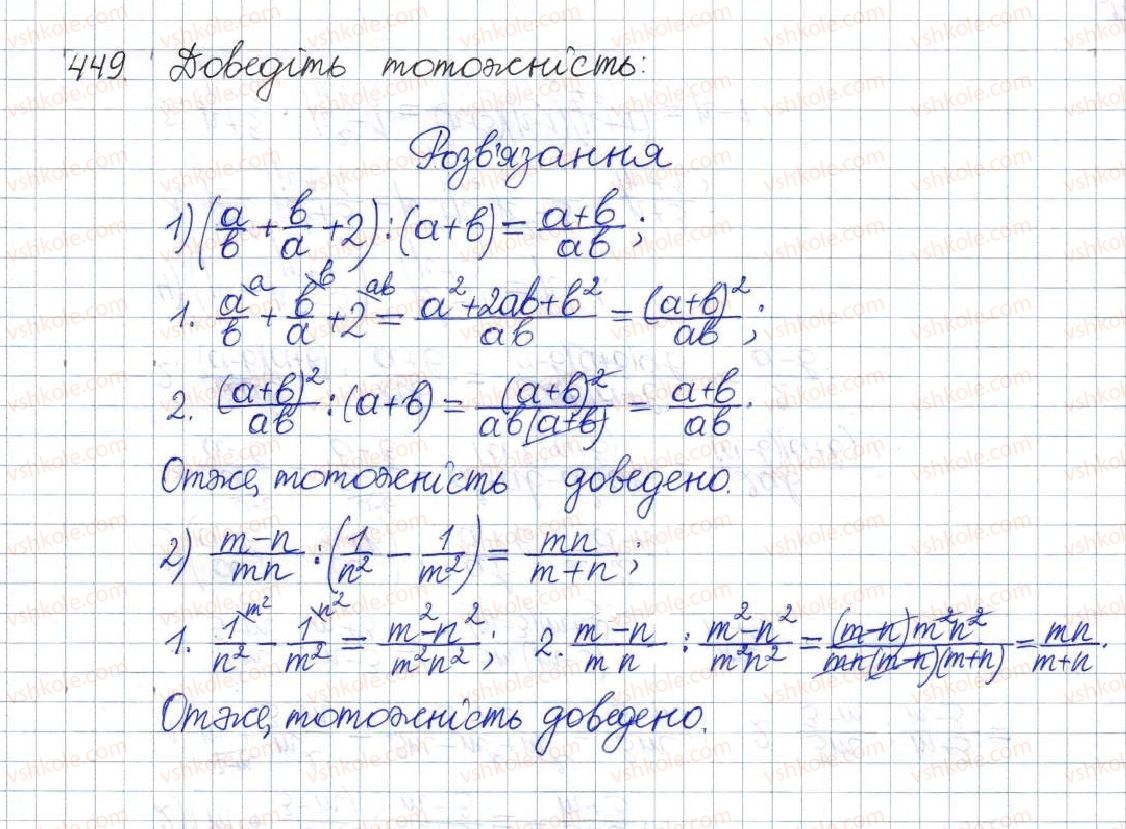 449. Доведіть тотожність:
Розв'язання
1) (a/b + b/a + 2) : (a+b) = (a+b)/(ab);
1. a/b + b/a + 2 = (a²+2ab+b²)/(ab) = (a+b)²/(ab);
2. (a+b)²/(ab) : (a+b) = (a+b)²/(ab(a+b)) = (a+b)/(ab).
Отже, тотожність доведено.
2) (m−n)/(mn) : (1/n² − 1/m²) = mn/(m+n);
1. 1/n² − 1/m² = (m²−n²)/(m²n²); 2. (m−n)/(mn) : (m²−n²)/(m²n²) = (m−n)m²n²/(mn(m−n)(m+n)) = mn/(m+n).
Отже, тотожність доведено.